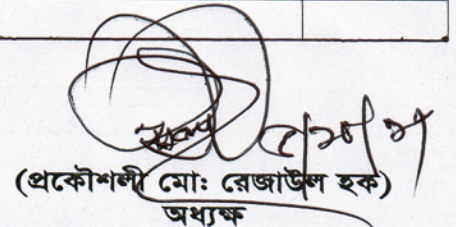 (প্রকৌশলী মো: রেজাউল হক)
অধ্যক্ষ